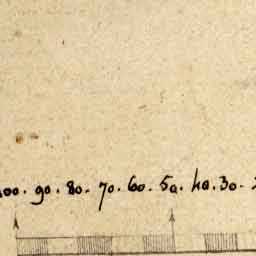 100. 90. 80. 70. 60. 50. 40. 30.